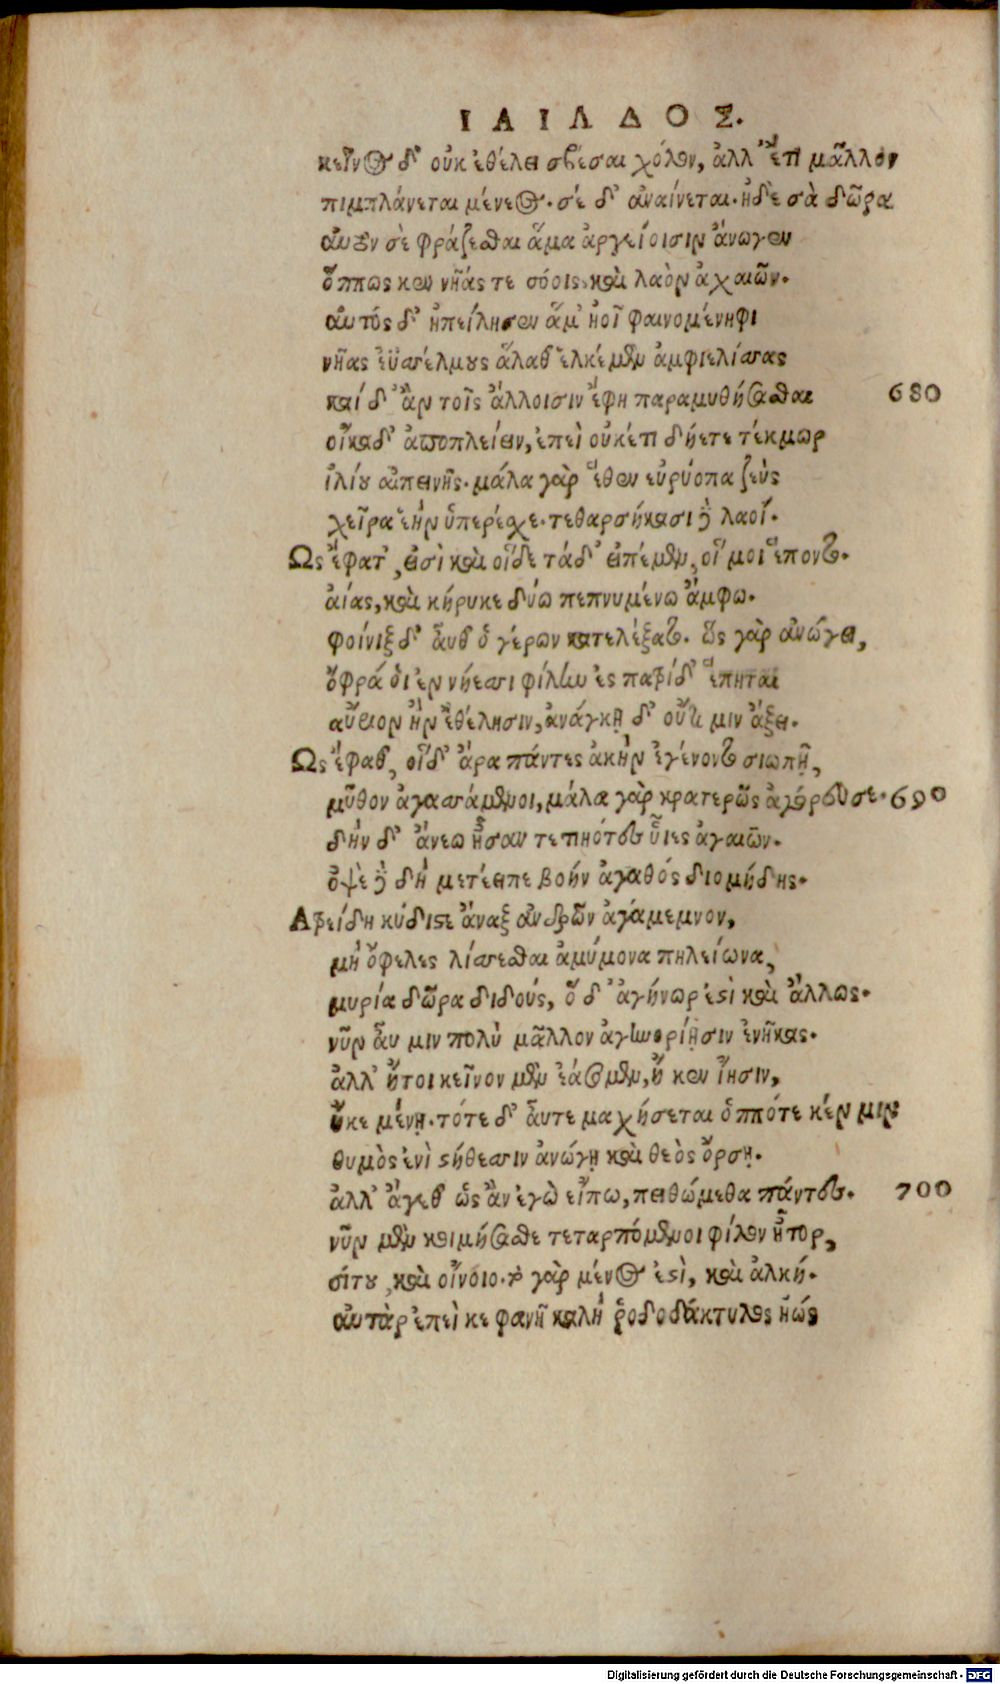 ΙΛΙΑΔΟΣ.
κεῖνος δ' οὐκ ἐθέλει σβέσαι χόλον, ἀλλ' ἔτι μᾶλλον
πιμπλάνεται μένεος. σέ δ' ἀναίνεται. ἠδὲ σὰ δῶρα
αὐτὸν σὲ φράζεσθαι ἅμα ἀργείοισιν ἄνωγεν
ὅππως κεν νῆάς τε σόοις, καὶ λαὸν ἀχαιῶν.
αὐτός δ' ἠπείλησεν ἅμ' ἠοῖ φαινομένηφι
νῆας ἐϋσσέλμους ἅλαδ' ἑλκέμεν ἀμφιελίσσας
καί δ' ἂν τοῖς ἄλλοισιν ἔφη παραμυθήσασθαι 680
οἴκαδ' ἀποπλείειν, ἐπεὶ οὐκέτι δήετε τέκμωρ
ἰλίου αἰπεινῆς. μάλα γὰρ ἕθεν εὐρύοπα ζεὺς
χεῖρα ἑὴν ὑπερέσχε. τεθαρσήκασι δὲ λαοί.
Ως ἔφατ', εἰσὶ καὶ οἵδε τάδ' εἰπέμεν, οἵ μοι ἕποντο.
αἴας, καὶ κήρυκε δύω πεπνυμένω ἄμφω.
φοίνιξ δ' αὖθ' ὁ γέρων κατελέξατο. ὣς γὰρ ἀνώγει,
ὄφρά ὁι ἐν νήεσσι φίλην ἐς πατρίδ' ἕπηται
αὔριον ἢν ἐθέλησιν, ἀνάγκῃ δ' οὔτι μιν ἄξει.
Ως ἔφαθ', οἵδ' ἄρα πάντες ἀκὴν ἐγένοντο σιωπῇ,
μῦθον ἀγασσάμενοι, μάλα γὰρ κρατερῶς ἀγόρευσε. 690
δὴν δ' ἄνεω ἦσαν τετιηότες υἷες ἀχαιῶν.
ὀψὲ δὲ δὴ μετέειπε βοήν ἀγαθός διομήδης.
Ατρείδη κύδιστε ἄναξ ἀνδρῶν ἀγάμεμνον,
μὴ ὄφελες λίσσεσθαι ἀμύμονα πηλείωνα,
μυρία δῶρα διδούς, ὅ δ' ἀγήνωρ ἐστὶ καὶ ἄλλως.
νῦν αὖ μιν πολὺ μᾶλλον ἀγηνορίῃσιν ἐνῆκας.
ἀλλ' ἤτοι κεῖνον μὲν ἐάσομεν, ἤ κεν ἴησιν,
ἤ κε μένῃ. τότε δ' αὖτε μαχήσεται ὁππότε κέν μιν
θυμὸς ἐνὶ στήθεσσιν ἀνώγῃ καὶ θεὸς ὄρσῃ.
ἀλλ' ἄγεθ' ὡς ἂν ἐγὼ εἴπω, πειθώμεθα πάντες. 700
νῦν μὲν κοιμήσασθε τεταρπόμενοι φίλον ἦτορ,
σίτου, καὶ οἴνοιο. τὸ γὰρ μένος ἐστὶ, καὶ ἀλκή.
αὐτὰρ ἐπεὶ κε φανῇ καλὴ ῥοδοδάκτυλος ἠώς
Digitalisierung gefördert durch die Deutsche Forschungsgemeinschaft - DFG